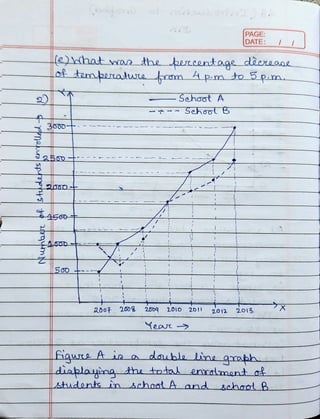 PAGE:
DATE: / /
(e) What was the percentage decrease
of temperature from 4 p.m to 5 p.m.
Y
School A
School B
Number of students enrolled →
3000
2500
2000
1500
1000
500
2007 2008 2009 2010 2011 2012 2013
X
Year →
Figure A is a double line graph
displaying the total enrolment of
students in school A and school B